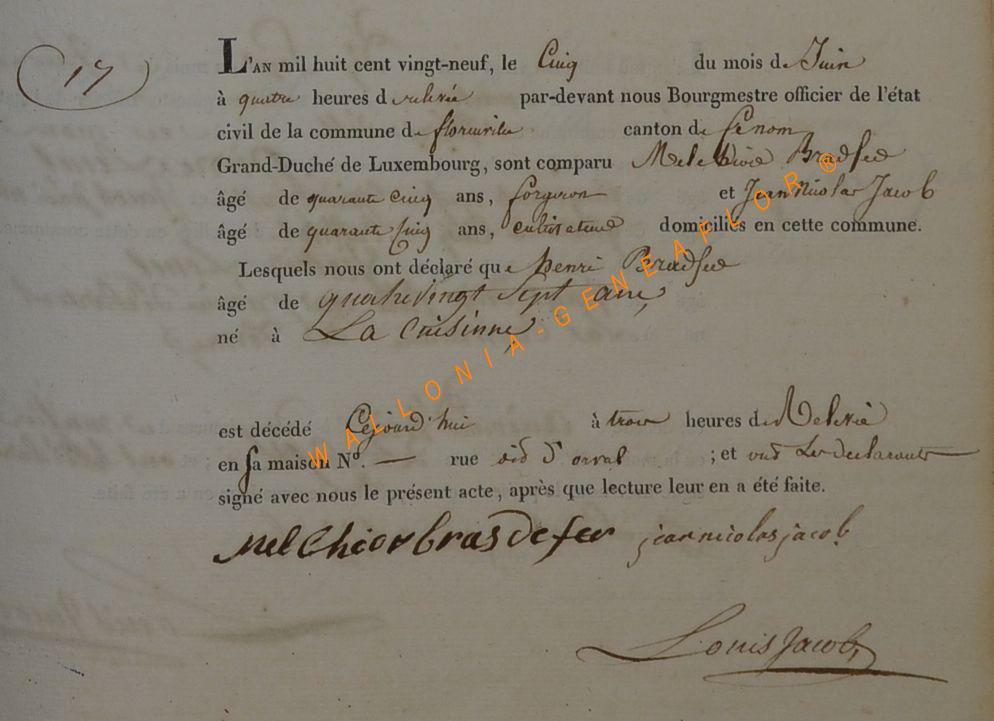 17
L'AN mil huit cent vingt-neuf, le Cinq du mois de Juin
à quatre heures de relevée par-devant nous Bourgmestre officier de l'état
civil de la commune de florenville canton de
Grand-Duché de Luxembourg, sont comparu Bradfer
âgé de quarante cinq ans, forgeron et Jean Nicolas Jacob
âgé de quarante cinq ans, cultivateur domiciliés en cette commune.
Lesquels nous ont déclaré que henri Bradfer
âgé de quatrevingt sept ans,
né à La Cuisinne
est décédé Cejourd'hui à trois heures de Relevée
en sa maison No. — rue d'orval ; et ont Les declarants
signé avec nous le présent acte, après que lecture leur en a été faite.
Mel Chior bras de fer jean nicolas jacob
Louis Jacob
WALLONIA-GENEAFLOR®